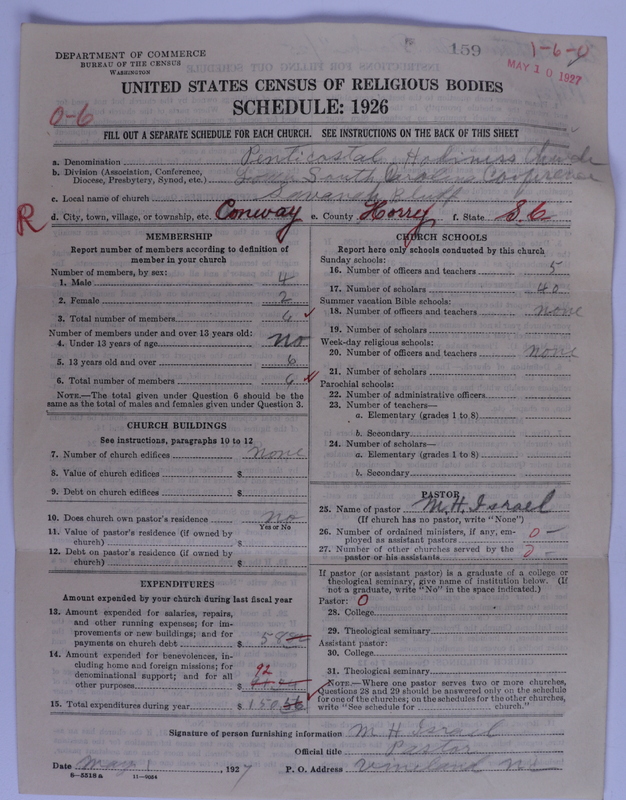 159
1-6-0
MAY 10 1927
DEPARTMENT OF COMMERCE
BUREAU OF THE CENSUS
WASHINGTON
UNITED STATES CENSUS OF RELIGIOUS BODIES
SCHEDULE: 1926
0-6
FILL OUT A SEPARATE SCHEDULE FOR EACH CHURCH. SEE INSTRUCTIONS ON THE BACK OF THIS SHEET
a. Denomination Penticostal Holiniss Church
b. Division (Association, Conference,
Diocese, Presbytery, Synod, etc.) Lower South Carolina Conference
c. Local name of church Savanah Bluff
R d. City, town, village, or township, etc. Conway e. County Horry f. State S.C
MEMBERSHIP
Report number of members according to definition of
member in your church
Number of members, by sex:
1. Male 4
2. Female 2
3. Total number of members 6 ✓
Number of members under and over 13 years old:
4. Under 13 years of age no
5. 13 years old and over 6
6. Total number of members 6 ✓
NOTE.—The total given under Question 6 should be
same as the total of males and females given under Question 3.
CHURCH BUILDINGS
See instructions, paragraphs 10 to 12
7. Number of church edifices none
8. Value of church edifices $
9. Debt on church edifices $
10. Does church own pastor's residence no
Yes or No
11. Value of pastor's residence (if owned by
church) $
12. Debt on pastor's residence (if owned by
church) $
EXPENDITURES
Amount expended by your church during last fiscal year
13. Amount expended for salaries, repairs,
and other running expenses; for im-
provements or new buildings; and for
payments on church debt $ 58
14. Amount expended for benevolences, in-
cluding home and foreign missions; for
denominational support; and for all
other purposes $ 92
15. Total expenditures during year $ 150
CHURCH SCHOOLS
Report here only schools conducted by this church
Sunday schools:
16. Number of officers and teachers 5
17. Number of scholars 40
Summer vacation Bible schools:
18. Number of officers and teachers none
19. Number of scholars
Week-day religious schools:
20. Number of officers and teachers none
21. Number of scholars
Parochial schools:
22. Number of administrative officers
23. Number of teachers—
a. Elementary (grades 1 to 8)
b. Secondary
24. Number of scholars—
a. Elementary (grades 1 to 8)
b. Secondary
PASTOR
25. Name of pastor M.H. Israel
(If church has no pastor, write "None")
26. Number of ordained ministers, if any, em-
ployed as assistant pastors 0 -
27. Number of other churches served by the
pastor or his assistants 0 -
If pastor (or assistant pastor) is a graduate of a college or
theological seminary, give name of institution below. (If
not a graduate, write "No" in the space indicated.)
Pastor: 0
28. College
29. Theological seminary
Assistant pastor:
30. College
31. Theological seminary
NOTE.—Where one pastor serves two or more churches,
Questions 28 and 29 should be answered only on the schedule
for one of the churches; on the schedules for the other churches,
write "See schedule for church."
Signature of person furnishing information M H Israel
Official title Pastor
Date May 1, 1927 P. O. Address Vineland NC
8-5518a 11-9084